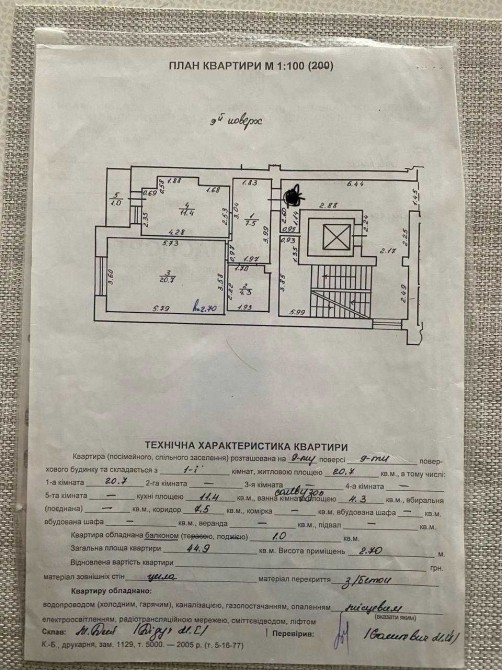 ПЛАН КВАРТИРИ М 1:100 (200)
9й поверх
1.88
1.83
6.44
0.69
0.58
1.68
5
1.0
4
11.4
2.35
2.53
3.04
1
7.5
2.60
1.14
2.88
2.24
1.45
0.95
0.93
3.99
4.28
5.73
0.97
1.97
1.70
2.18
2.25
3.60
3
20.7
3.58
2.22
2
4.3
3.85
2.49
5.79
h=2.70
1.93
5.99
ТЕХНІЧНА ХАРАКТЕРИСТИКА КВАРТИРИ
Квартира (посімейного, спільного заселення) розташована на 9-му поверсі 9-ти повер-
хового будинку та складається з 1-ї кімнат, житловою площею 20.7 кв.м, в тому числі:
1-а кімната 20.7 2-га кімната — 3-я кімната — 4-а кімната —
санвузол
5-та кімната — кухні площею 11.4 кв.м., ванна кімната площею 4.3 кв.м., вбиральня
(поєднана) — кв.м., коридор 7.5 кв.м., комірка — кв.м. вбудована шафа — кв.м.
вбудована шафа — кв.м., веранда — кв.м., підвал — кв.м.
Квартира обладнана балконом (терасою, лоджією) 1.0 кв.м.
Загальна площа квартири 44.9 кв.м. Висота приміщень 2.70 м.
Відновлена вартість квартири грн.
матеріал зовнішніх стін цегла матеріал перекриття з/бетон
Квартиру обладнано:
водопроводом (холодним, гарячим), каналізацією, газопостачанням, опаленням місцевим
(вказати яким)
електроосвітленням, радіотрансляційною мережею, сміттєвідводом, ліфтом
Склав: Перевірив:
К.-Б., друкарня, зам. 1129, т. 5000. — 2005 р. (т. 5-16-77)